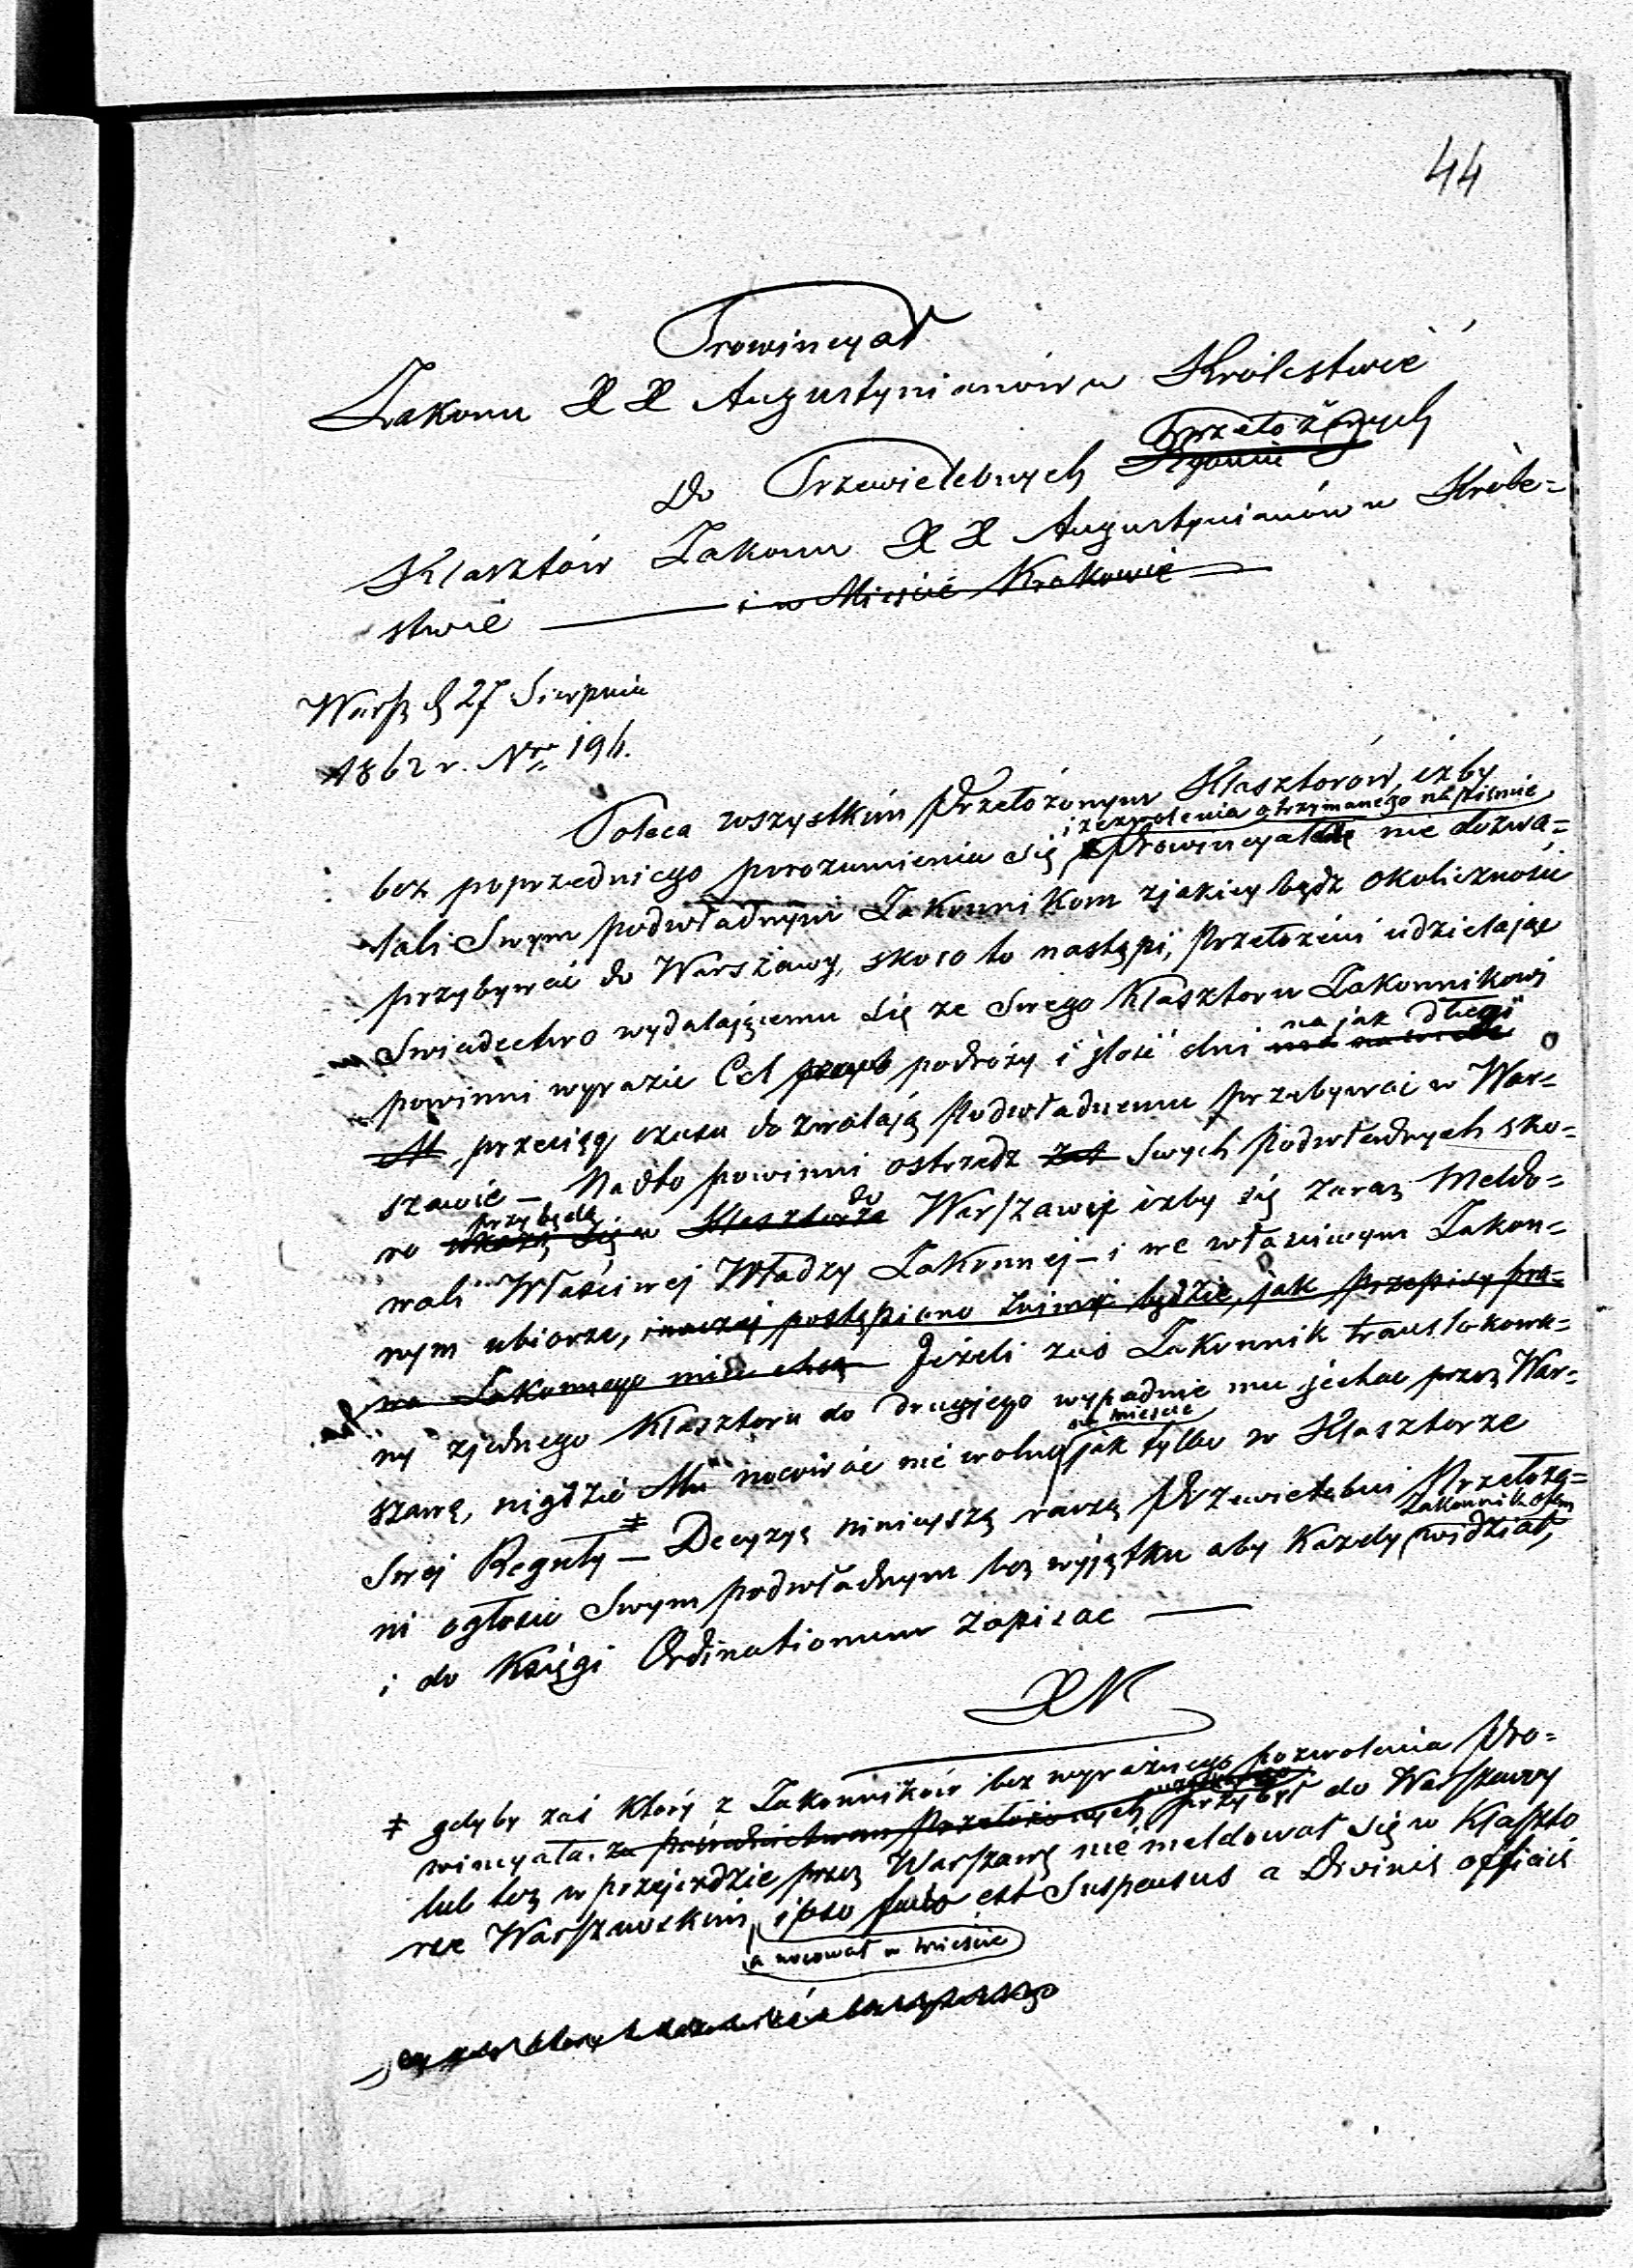 44
Prowincyał
Zakonu XX Augustynianów w Królestwie
Do Przewielebnych Przełożonych
Klasztów Zakonu XX Augustynianów w Króle=
stwie — i w Mieście Krakowie —
Warsz d 27 Sierpnia
1862 r. Nro 196.
Poleca wszystkim Przełożonym Klasztorów, iżby
i zezwolenia otrzymanego na piśmie
bez poprzedniego porozumienia się z Prowincyałem nie dozwa=
lali Swym podwładnym Zakonnikom z jakiey bądź okoliczności
przybywać do Warszawy, skoro to nastąpi, Przełożeni udzielając
Swiadectwo wydalającemu się ze Swego Klasztoru Zakonnikowi
na jak długi
powinni wyrazić Cel podróży i ilość dni
przeciąg czasu dozwalają Podwładnemu przebywać w War=
szawie — Nadto powinni ostrzedz Swych Podwładnych sko=
przybędą do
ro w Klasztorze Warszawie iżby się zaraz meldo=
wali Właściwej Władzy Zakonnej — i we właściwym Zakon=
nym ubiorze, inaczej postąpiono z nimi będzie, jak przepisy pra=
wa Zakonnego mieć chcą — Jeżeli zaś Zakonnik translokowa=
ny z jednego Klasztoru do drugiego wypadnie mu jechać przez War=
w mieście
szawę, nigdzie Mu nocować nie wolno jak tylko w Klasztorze
Swej Reguły — ‡ Decyzyą niniejszą raczą Przewielebni Przełoże=
Zakonnik o tem
ni ogłosić Swym podwładnym bez wyjątku aby Każdy wiedział,
i do Księgi Ordinationum zapisać —
XN
‡ gdyby zaś który z Zakonników bez wyraźnego pozwolenia Pro=
wincyała za pośrednictwem Przełożonych przybył do Warszawy
lub też w przejeździe przez Warszawę nie meldował się w Klaszto
rze Warszawskim, ipso facto est Suspensus a Divinis officiis
a nocował w mieście